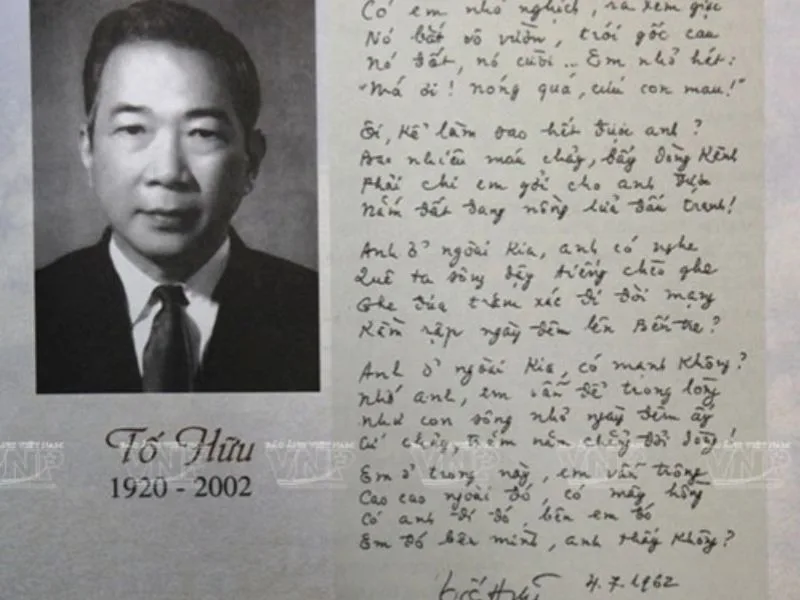 Có em nhỏ nghịch, ra xem giặc
Nó bắt vô vườn, trói gốc cau
Nó đốt, nó cười... Em nhỏ hét:
"Má ơi! nóng quá, cứu con mau!"
Ôi, kể làm sao hết được anh?
Bao nhiêu máu chảy, bấy dòng kênh
Phải chi em gởi cho anh được
Nắm đất đang nồng lửa đấu tranh!
Anh ở ngoài kia, anh có nghe
Quê ta sông dậy tiếng chèo ghe
Ghe đưa trăm xác đi đòi mạng
Rầm rập ngày đêm lên Bến tre?
Anh ở ngoài kia, có mạnh không?
Nhớ anh, em vẫn để trong lòng
Như con sông nhỏ ngày đêm ấy
Cứ chảy, trăm năm chẳng đổi dòng!
Em ở trong này, em vẫn trông
Cao cao ngoài đó, có mây hồng
Có anh đi đó, bên em đó
Em đó bên mình, anh thấy không?
Tố Hữu 4.7.1962
Tố Hữu
1920 - 2002
BÁO ẢNH VIỆT NAM
VNP